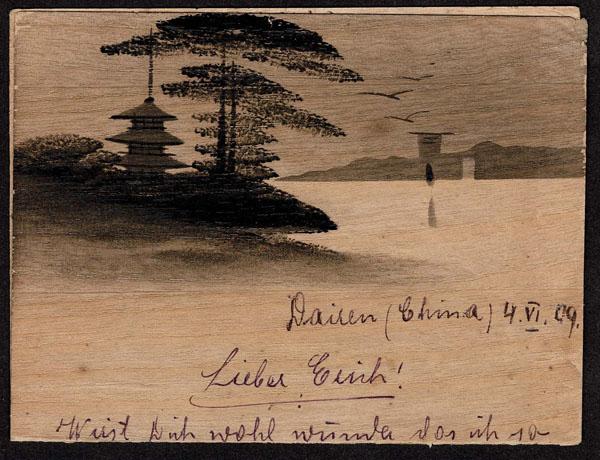 Dairen (China) 4.VI.09.
Lieber Erich!
Wirst Dich wohl wundern das ich so